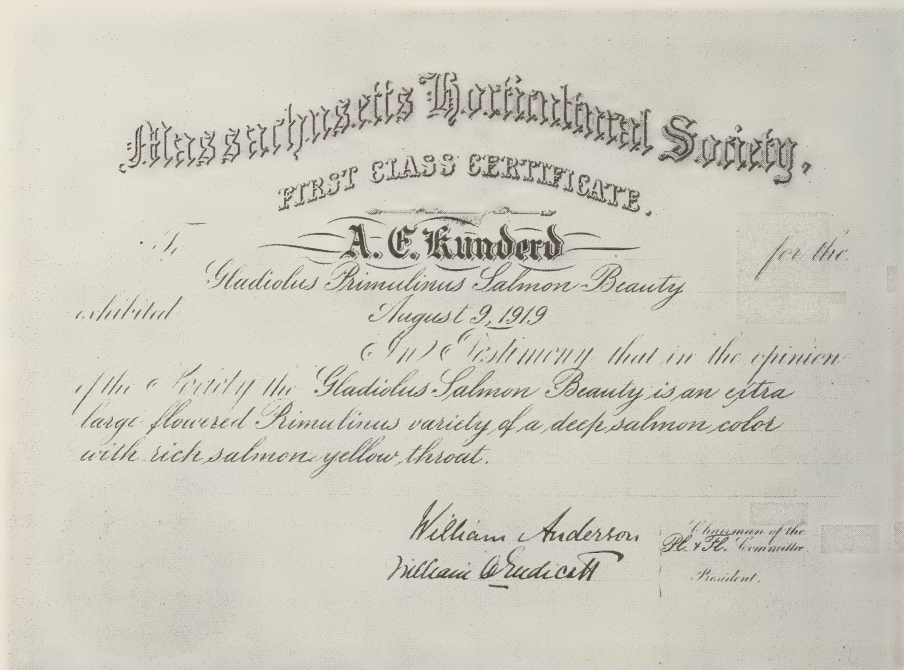 Massachusetts Horticultural Society,
FIRST CLASS CERTIFICATE.
To A. E. Kunderd for the
Gladiolus Primulinus Salmon Beauty
exhibited August 9, 1919
In Testimony that in the opinion
of the Society the Gladiolus Salmon Beauty is an extra
large flowered Primulinus variety of a deep salmon color
with rich salmon yellow throat.
William Anderson Chairman of the
Pl. & Fl. Committee.
William C. Endicott President.